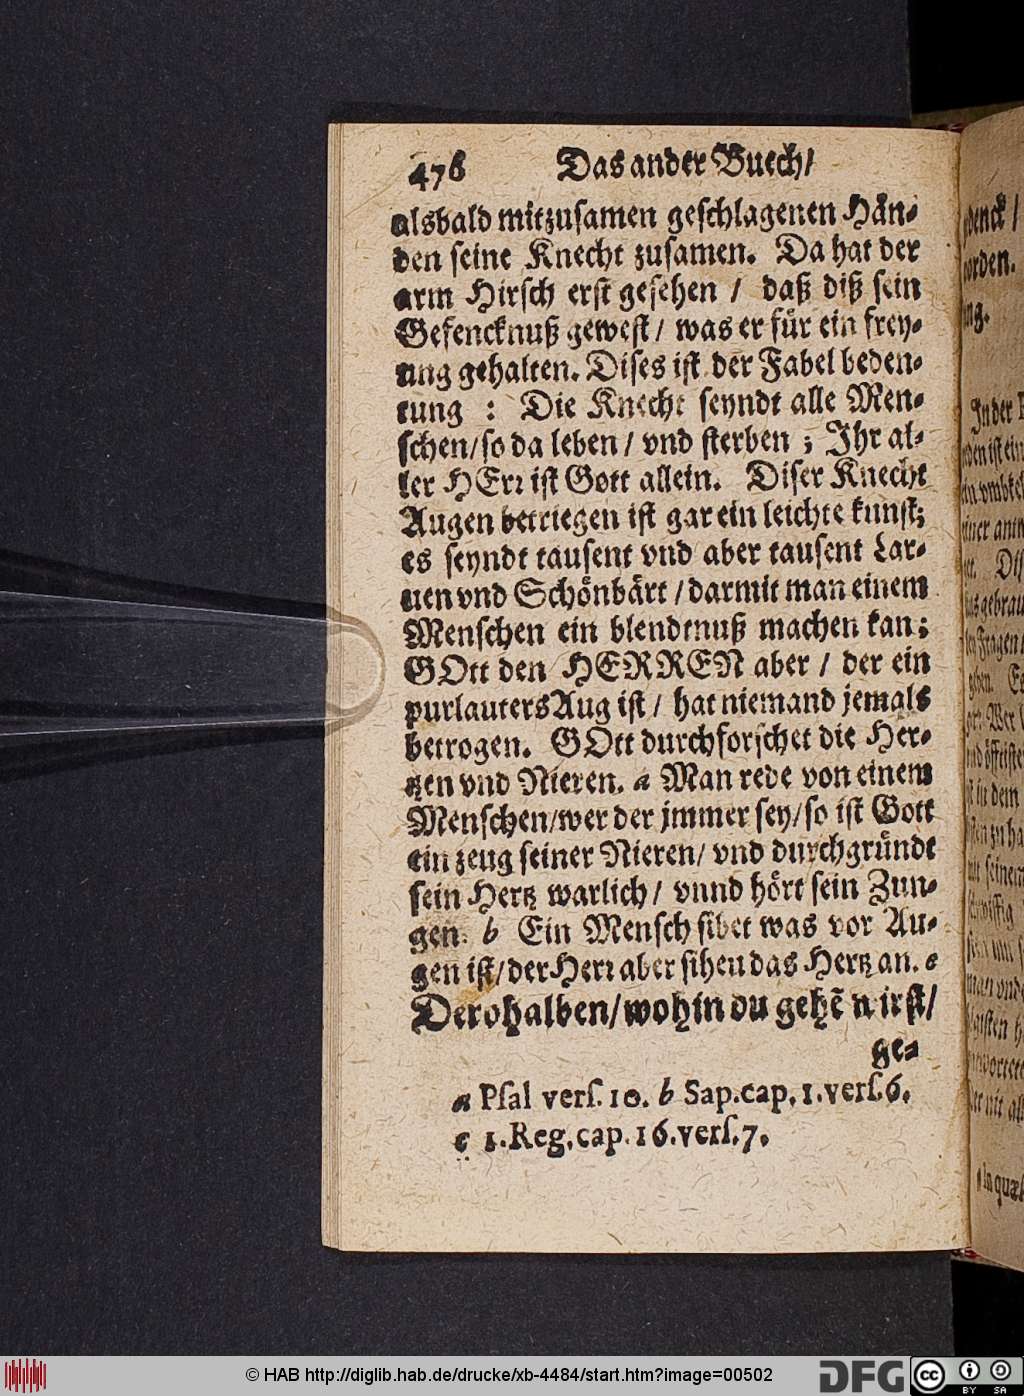 476 Das ander Buech/
alsbald mitzusamen geschlagenen Hän⸗
den seine Knecht zusamen. Da hat der
arm Hirsch erst gesehen / daß diß sein
Gefencknuß gewest / was er für ein frey⸗
ung gehalten. Dises ist der Fabel beden⸗
tung : Die Knecht seyndt alle Men⸗
schen/so da leben / vnd sterben ; Ihr al⸗
ler HErr ist Gott allein. Diser Knecht
Augen betriegen ist gar ein leichte kunst;
es seyndt tausent vnd aber tausent Lar⸗
uen vnd Schönbärt / darmit man einem
Menschen ein blendtnuß machen kan;
GOtt den HERREN aber / der ein
purlauters Aug ist / hat niemand jemals
betrogen. GOtt durchforschet die Her⸗
tzen vnd Nieren. a Man rede von einem
Menschen/wer der jmmer sey/so ist Gott
ein zeug seiner Nieren/ vnd durchgründt
sein Hertz warlich/ vnnd hört sein Zun⸗
gen. b Ein Mensch sihet was vor Au⸗
gen ist/der Herr aber sihen das Hertz an. c
Derohalben/wohin du gehẽ wirst/
ge⸗
a Psal vers. 10. b Sap.cap. 1.vers.6.
c 1.Reg.cap.16.vers.7.
© HAB http://diglib.hab.de/drucke/xb-4484/start.htm?image=00502
DFG
cc BY SA